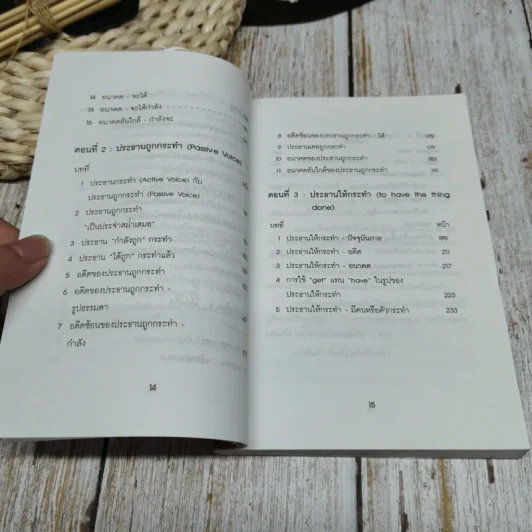 14 อนาคต - จะได้
15 อนาคต - จะได้กำลัง
16 อนาคตอันใกล้ - กำลังจะ
ตอนที่ 2 : ประธานถูกกระทำ (Passive Voice)
บทที่
1 ประธานกระทำ (Active Voice) กับ
ประธานถูกกระทำ (Passive Voice)
2 ประธานถูกกระทำ
"เป็นประจำสม่ำเสมอ"
3 ประธาน "กำลังถูก" กระทำ
4 ประธาน "ได้ถูก" กระทำแล้ว
5 อดีตของประธานถูกกระทำ
6 อดีตของประธานถูกกระทำ -
รูปธรรมดา
7 อดีตซ้อนของประธานถูกกระทำ -
กำลัง
14
8 อดีตซ้อนของประธานถูกกระทำ - ได้
9 ประธานเคยถูกกระทำ 179
10 อนาคตของประธานถูกกระทำ 183
11 อนาคตอันใกล้ของประธานถูกกระทำ 191
ตอนที่ 3 : ประธานให้กระทำ (to have the thing
done)
บทที่ หน้า
1 ประธานให้กระทำ - ปัจจุบันกาล 199
2 ประธานให้กระทำ - อดีต 211
3 ประธานให้กระทำ - อนาคต 217
4 การใช้ "get" แทน "have" ในรูปของ
ประธานให้กระทำ 223
5 ประธานให้กระทำ - มีคนหรือตัวกระทำ 233
15